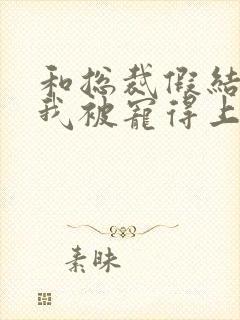 和总裁假结
我被宠得上
素昧